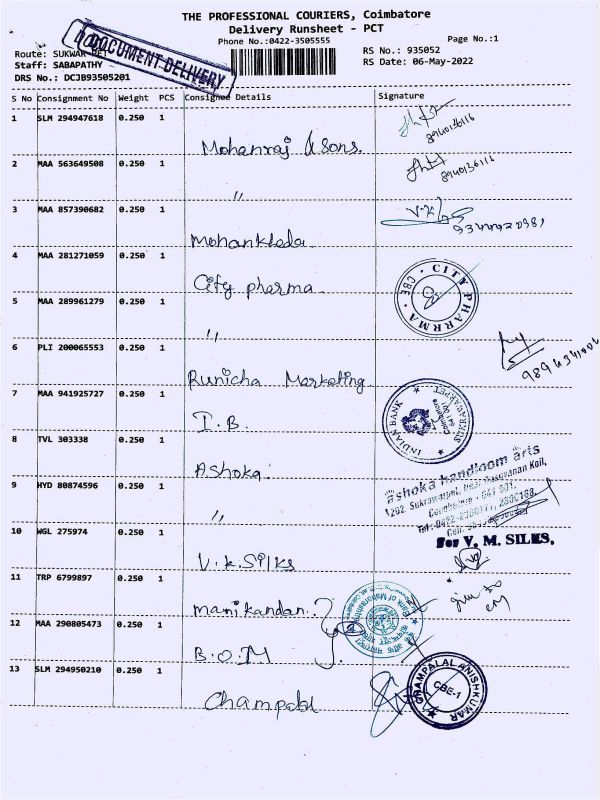 THE PROFESSIONAL COURIERS, Coimbatore
Delivery Runsheet - PCT
Phone No.:0422-3505555
Page No.:1
Route: SUKWAR PET
RS No.: 935052
Staff: SABAPATHY
RS Date: 06-May-2022
DRS No.: DCJB93505201
DOCUMENT DELIVERY
S No Consignment No Weight PCS Consignee Details Signature
1 SLM 294947618 0.250 1 Mohanraj & Sons. 8940136116
2 MAA 563649508 0.250 1 " 8940136116
3 MAA 857390682 0.250 1 Mohankheda V.K
4 MAA 281271059 0.250 1 City pharma
CITY PHARMA CBE
5 MAA 289961279 0.250 1 "
6 PLI 200065553 0.250 1 Runicha Marketing
7 MAA 941925727 0.250 1 I.B.
INDIAN BANK
Coimbatore
641 001
8 TVL 303338 0.250 1 Ashoka
9 HYD 80874596 0.250 1 "
ashoka handloom arts
Coimbatore - 641 001.
10 WGL 275974 0.250 1 V.k.Silks
For V. M. SILKS.
11 TRP 6799897 0.250 1 manikandan
12 MAA 290805473 0.250 1 B.O.M
Bank of Maharashtra
13 SLM 294950210 0.250 1 Champalal
CHAMPALAL ANISHKUMAR
CBE-1